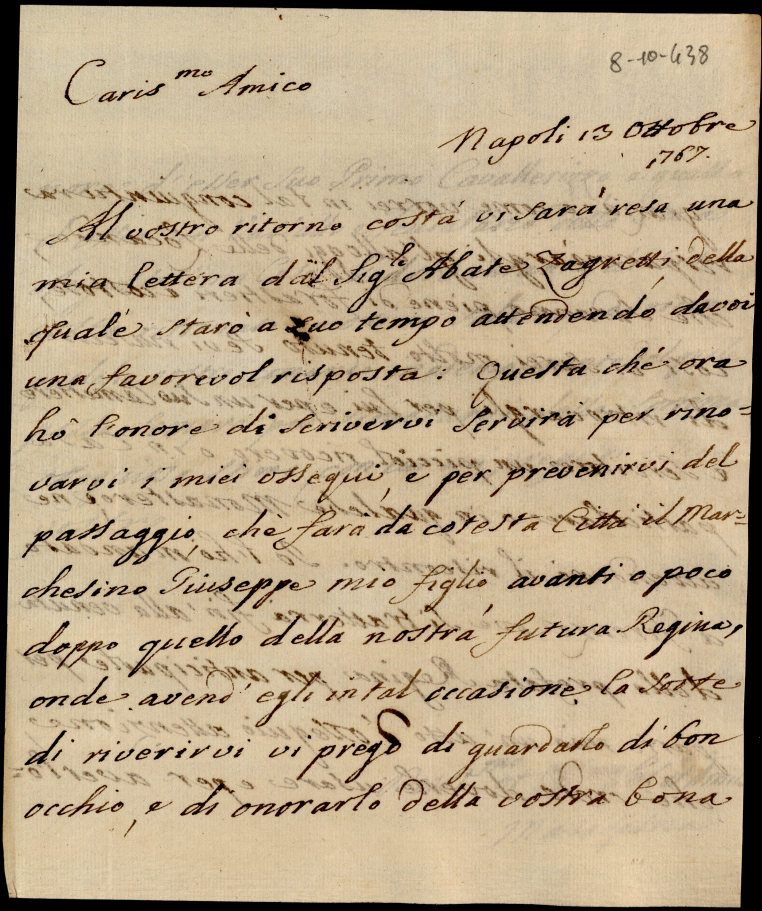 8-10-638
Caris.mo Amico
Napoli 13 Ottobre
1767.
Al vostro ritorno costá vi sará resa una
mia lettera dal Sig.le Abate Zagretti, della
quale staró a suo tempo attendendo davoi
una favorevol risposta: Questa ché ora
hó l'onore di scrivervi servirá per rino=
varvi i miei ossequi, e per prevenirvi del
passaggio, ché fará da cotesta Cittá il Mar=
chesino Giuseppe mio figlio avanti o poco
doppo quello della nostra futura Regina,
onde avend' egli in tal occasione la sorte
di riverirvi vi prego di guardarlo di bon
occhio, e di onorarlo della vostra bona